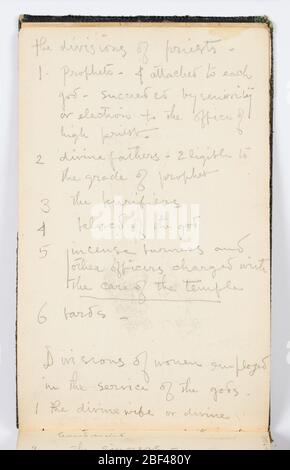 the divisions of priests -
1. Prophets - 4 attached to each
god - succeeded by seniority
or election to the office of
high priest.
2 divine fathers - 2 eligible to
the grade of prophet
3 the purifiers
4 beloved of the god
5 incense burning and
other officers charged with
the care of the temple
6 bards -
Divisions of women employed
in the service of the gods.
1 the divine wife or divine
alamy
Image ID: 2BF480Y
www.alamy.com